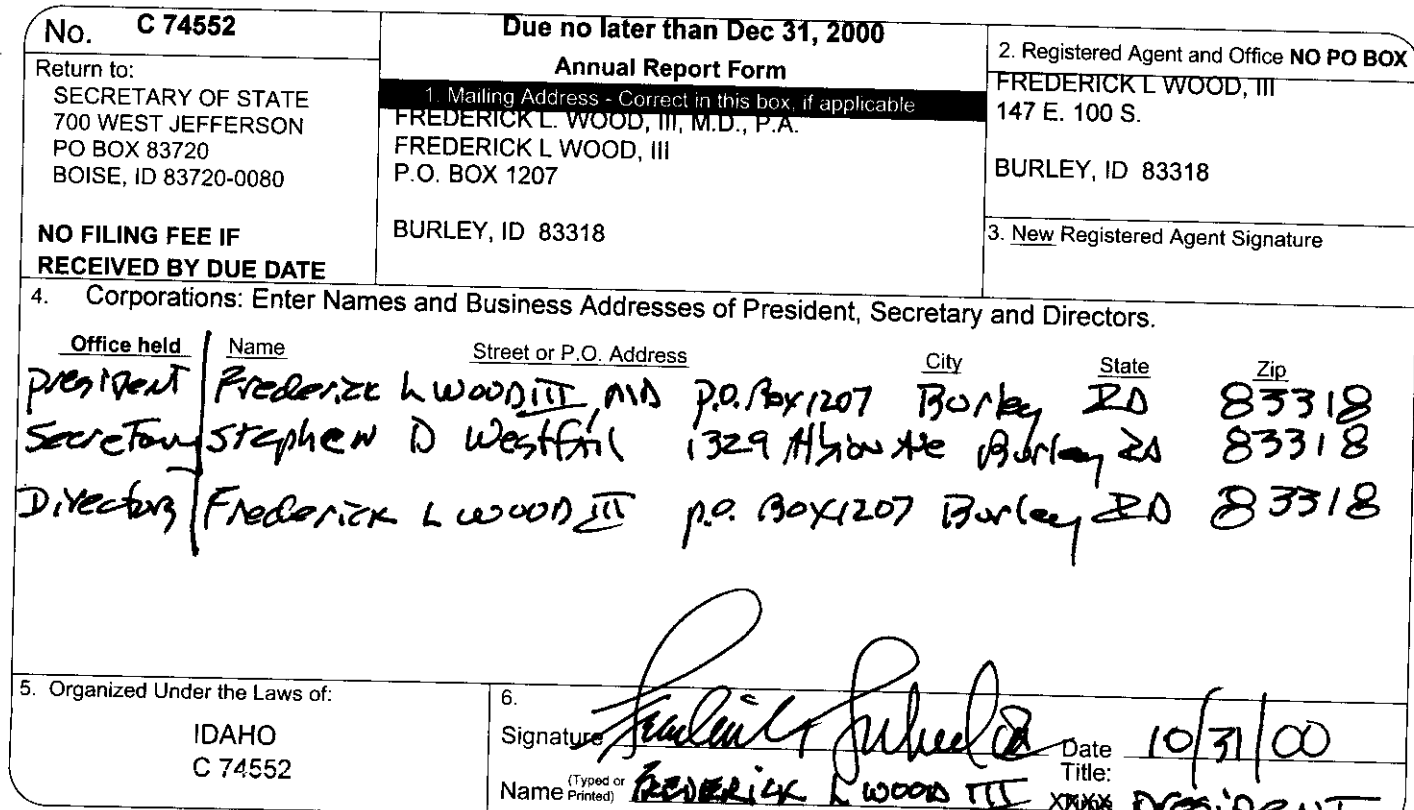 No. C 74552
Return to:
SECRETARY OF STATE
700 WEST JEFFERSON
PO BOX 83720
BOISE, ID 83720-0080
NO FILING FEE IF
RECEIVED BY DUE DATE
Due no later than Dec 31, 2000
Annual Report Form
1. Mailing Address - Correct in this box, if applicable
FREDERICK L. WOOD, III, M.D., P.A.
FREDERICK L WOOD, III
P.O. BOX 1207
BURLEY, ID 83318
2. Registered Agent and Office NO PO BOX
FREDERICK L WOOD, III
147 E. 100 S.
BURLEY, ID 83318
3. New Registered Agent Signature
4. Corporations: Enter Names and Business Addresses of President, Secretary and Directors.
Office held Name Street or P.O. Address City State Zip
President Frederick L WOOD III, MD P.O. Box 1207 Burley ID 83318
Secretary Stephen D 1329 Burley ID 83318
Directors Frederick L WOOD III P.O. Box 1207 Burley ID 83318
5. Organized Under the Laws of:
IDAHO
C 74552
6.
Signature Date 10/31/00
Name (Typed or Printed) FREDERICK L WOOD III Title: President